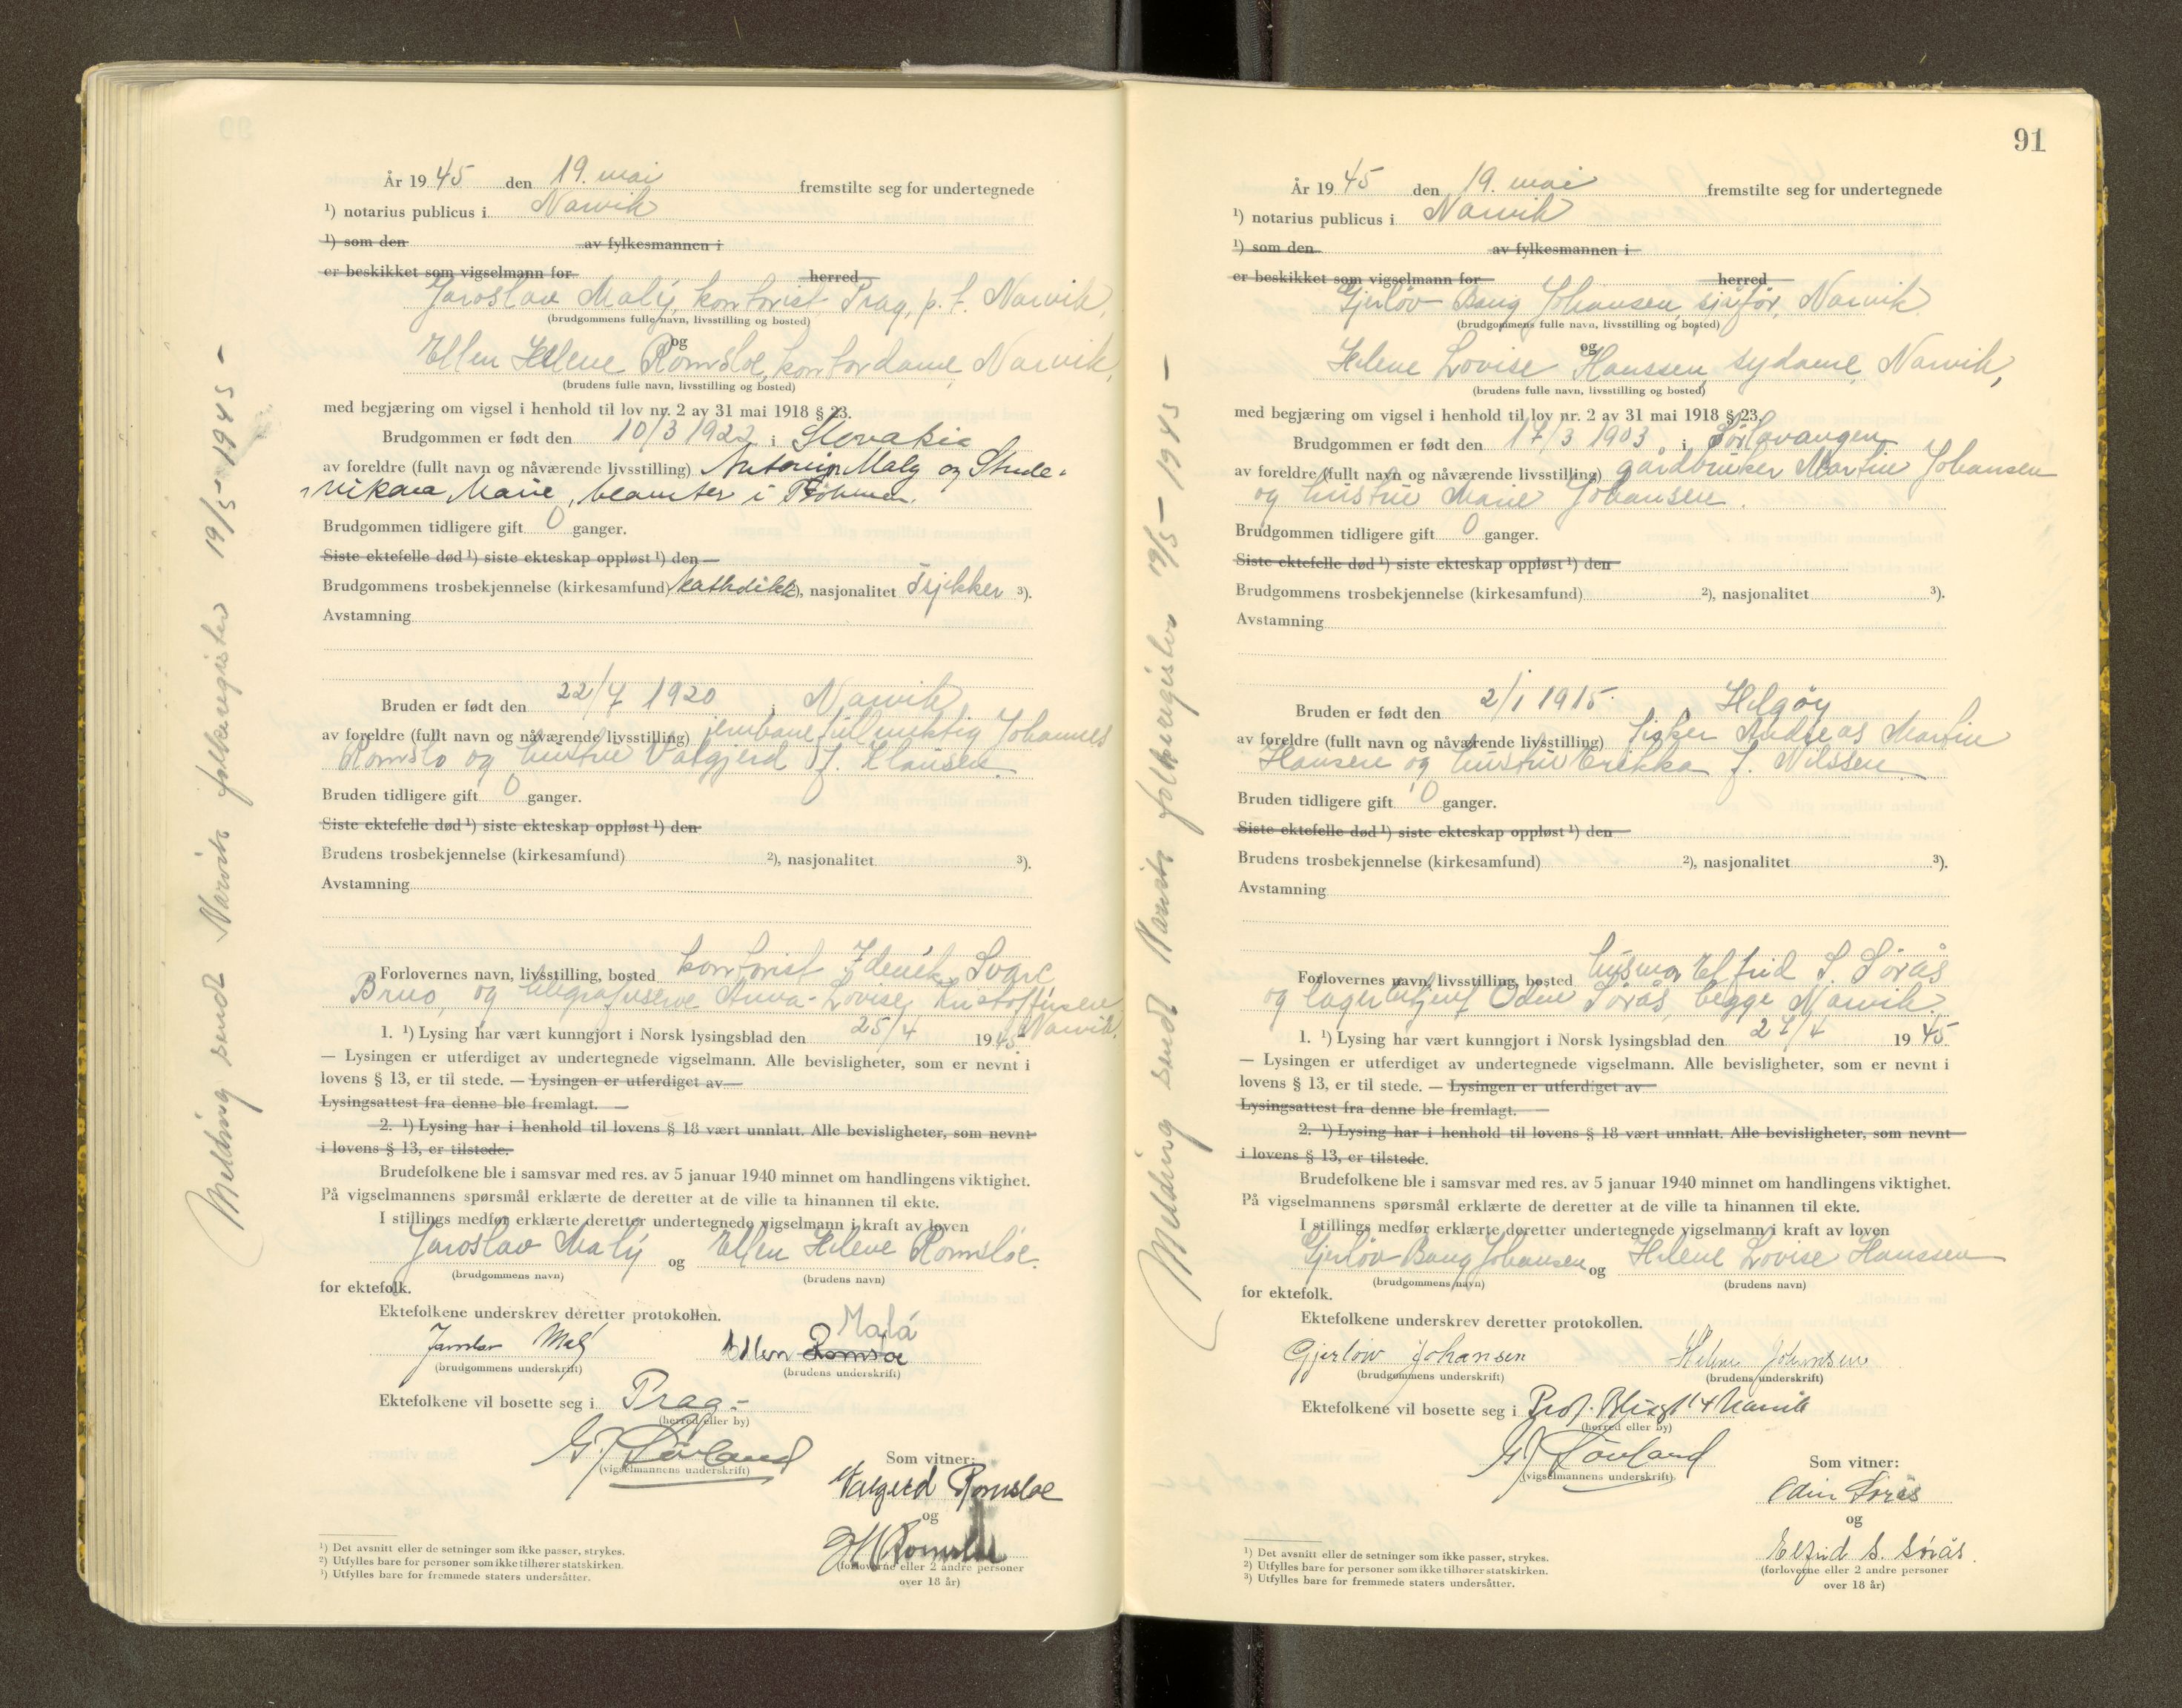 År 1945 den 19. mai fremstilte seg for undertegnede
¹) notarius publicus i Narvik
¹) som den av fylkesmannen i
er beskikket som vigselmann for herred
Jaroslav Malý, kontorist, Prag, p.t. Narvik,
(brudgommens fulle navn, livsstilling og bosted)
og
Ellen Helene Romsloe, kontordame, Narvik,
(brudens fulle navn, livsstilling og bosted)
med begjæring om vigsel i henhold til lov nr. 2 av 31 mai 1918 § 23.
Brudgommen er født den 10/3 1922 i Slovakia
av foreldre (fullt navn og nåværende livsstilling) Antonin Maly og Stude-
nikova Marie, beamter i Böhmen.
Brudgommen tidligere gift 0 ganger.
Siste ektefelle død ¹) siste ekteskap oppløst ¹) den
Brudgommens trosbekjennelse (kirkesamfund) kathólikk ²), nasjonalitet Tsjekker ³).
Avstamning
Bruden er født den 22/7 1920 i Narvik
av foreldre (fullt navn og nåværende livsstilling) jernbanefullmektig Johannes
Romslo og hustru Valgjerd f. Klausen.
Bruden tidligere gift 0 ganger.
Siste ektefelle død ¹) siste ekteskap oppløst ¹) den
Brudens trosbekjennelse (kirkesamfund) ²), nasjonalitet ³).
Avstamning
Forlovernes navn, livsstilling, bosted kontorist Zdenék Svarc
Brno, og Anna-Lovise Kristoffersen
Narvik.
1. ¹) Lysing har vært kunngjort i Norsk lysingsblad den 25/4 1945
— Lysingen er utferdiget av undertegnede vigselmann. Alle bevisligheter, som er nevnt i
lovens § 13, er til stede. — Lysingen er utferdiget av
Lysingsattest fra denne ble fremlagt.
2. ¹) Lysing har i henhold til lovens § 18 vært unnlatt. Alle bevisligheter, som nevnt
i lovens § 13, er tilstede.
Brudefolkene ble i samsvar med res. av 5 januar 1940 minnet om handlingens viktighet.
På vigselmannens spørsmål erklærte de deretter at de ville ta hinannen til ekte.
I stillings medfør erklærte deretter undertegnede vigselmann i kraft av loven
Jaroslav Malý og Ellen Helene Romsloe.
(brudgommens navn) (brudens navn)
for ektefolk.
Ektefolkene underskrev deretter protokollen.
Malá
Jaroslav Malý Ellen Romsloe
(brudgommens underskrift) (brudens underskrift)
Ektefolkene vil bosette seg i Prag -
(herred eller by)
G. J. Løvland
(vigselmannens underskrift)
Som vitner:
Valgerd Romsloe
og
JH Romsloe
(forloverne eller 2 andre personer
over 18 år)
¹) Det avsnitt eller de setninger som ikke passer, strykes.
²) Utfylles bare for personer som ikke tilhører statskirken.
¹) Utfylles bare for fremmede staters undersåtter.
Melding sendt Narvik folkeregister 19/5-1945 -
91
År 1945 den 19. mai fremstilte seg for undertegnede
¹) notarius publicus i Narvik
¹) som den av fylkesmannen i
er beskikket som vigselmann for herred
Gjerløv Bang Johansen, sjåför, Narvik
(brudgommens fulle navn, livsstilling og bosted)
og
Helene Lovise Hanssen, sydame, Narvik,
(brudens fulle navn, livsstilling og bosted)
med begjæring om vigsel i henhold til lov nr. 2 av 31 mai 1918 § 23.
Brudgommen er født den 17/3 1903 i Sörlavangen
av foreldre (fullt navn og nåværende livsstilling) gårdbruker Martin Johansen
og hustru Marie Johansen.
Brudgommen tidligere gift 0 ganger.
Siste ektefelle død ¹) siste ekteskap oppløst ¹) den
Brudgommens trosbekjennelse (kirkesamfund) ²), nasjonalitet ³).
Avstamning
Bruden er født den 2/1 1915. Helgöy
av foreldre (fullt navn og nåværende livsstilling) fisker Andreas Martin
Hansen og hustru Erikka f. Nilssen
Bruden tidligere gift 0 ganger.
Siste ektefelle død ¹) siste ekteskap oppløst ¹) den
Brudens trosbekjennelse (kirkesamfund) ²), nasjonalitet ³).
Avstamning
Forlovernes navn, livsstilling, bosted husmor Elfrid S. Sörås
og lagerbetjent Odin Sörås, begge Narvik.
1. ¹) Lysing har vært kunngjort i Norsk lysingsblad den 27/4 1945
— Lysingen er utferdiget av undertegnede vigselmann. Alle bevisligheter, som er nevnt i
lovens § 13, er til stede. — Lysingen er utferdiget av
Lysingsattest fra denne ble fremlagt.
2. ¹) Lysing har i henhold til lovens § 18 vært unnlatt. Alle bevisligheter, som nevnt
i lovens § 13, er tilstede.
Brudefolkene ble i samsvar med res. av 5 januar 1940 minnet om handlingens viktighet.
På vigselmannens spørsmål erklærte de deretter at de ville ta hinannen til ekte.
I stillings medfør erklærte deretter undertegnede vigselmann i kraft av loven
Gjerløv Bang Johansen og Helene Lovise Hanssen
(brudgommens navn) (brudens navn)
for ektefolk.
Ektefolkene underskrev deretter protokollen.
Gjerlöw Johansen Helene Johansen
(brudgommens underskrift) (brudens underskrift)
Ektefolkene vil bosette seg i Narvik
(herred eller by)
G. J. Løvland
(vigselmannens underskrift)
Som vitner:
Odin Sörås
og
Elfrid S. Sörås.
(forloverne eller 2 andre personer
over 18 år)
¹) Det avsnitt eller de setninger som ikke passer, strykes.
²) Utfylles bare for personer som ikke tilhører statskirken.
³) Utfylles bare for fremmede staters undersåtter.
Melding sendt Narvik folkeregister 19/5-1945 -